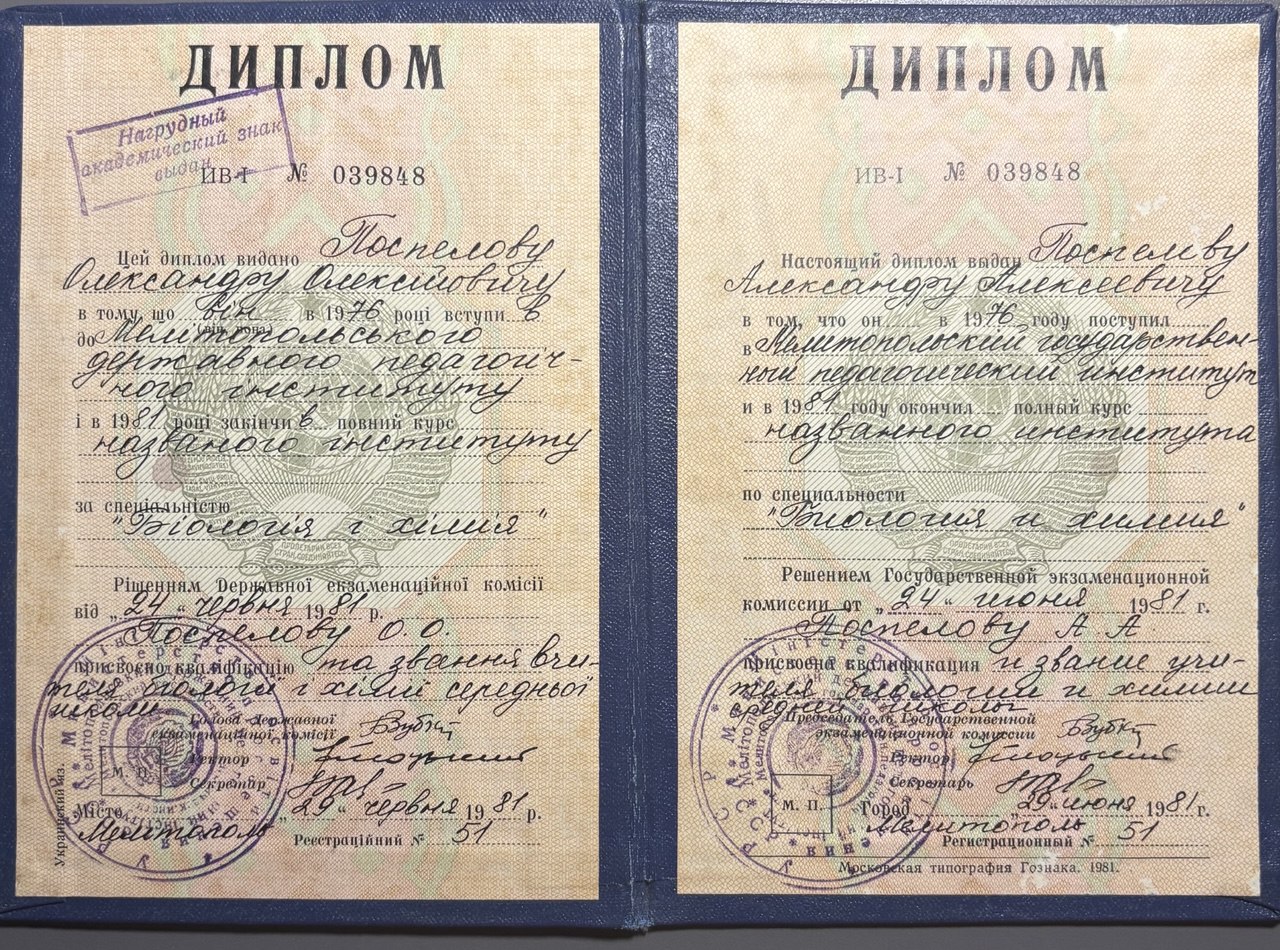 ДИПЛОМ
Нагрудный
академический знак
выдан
ИВ-I № 039848
Цей диплом видано Поспелову
Олександру Олексійовичу
в тому, що він в 1976 році вступи в
(він, вона)
до Мелітопольського
державного педагогіч-
ного інституту
і в 1981 році закінчи в повний курс
названого інституту
за спеціальністю
"Біологія і хімія"
Рішенням Державної екзаменаційної комісії
від „24" червня 1981 р.
Поспелову О.О.
присвоєно кваліфікацію та звання вчи-
теля біології і хімії середньої
школи
Голова Державної
екзаменаційної комісії
Ректор
Секретар
М. П.
Місто „29" червня 1981 р.
Мелітополь
Реєстраційний № 51
Украинский яз.
ПРОЛЕТАРИИ ВСЕХ
СТРАН, СОЕДИНЯЙТЕСЬ!
ДИПЛОМ
ИВ-I № 039848
Настоящий диплом выдан Поспелову
Александру Алексеевичу
в том, что он в 1976 году поступил
в Мелитопольский государствен-
ный педагогический институт
и в 1981 году окончил полный курс
названного института
по специальности
"Биология и химия"
ПРОЛЕТАРИИ ВСЕХ
СТРАН, СОЕДИНЯЙТЕСЬ!
Решением Государственной экзаменационной
комиссии от „24" июня 1981 г.
Поспелову А.А
присвоена квалификация и звание учи-
теля биологии и химии
средней школы
Председатель Государственной
экзаменационной комиссии
Ректор
Секретарь
М. П.
Город „29" июня 1981 г.
Мелитополь
Регистрационный № 51
Московская типография Гознака. 1981.